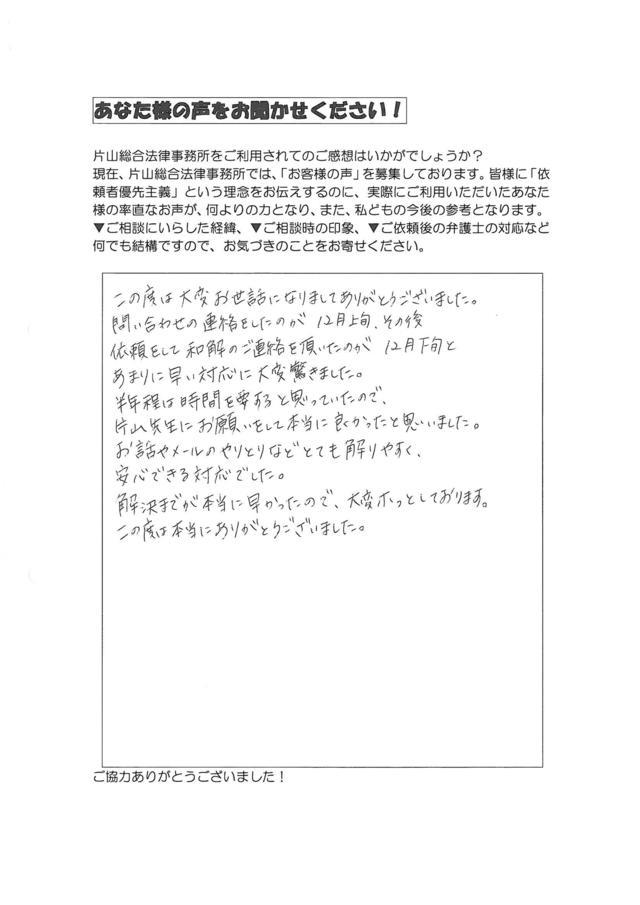 あなた様の声をお聞かせください！
片山総合法律事務所をご利用されてのご感想はいかがでしょうか？
現在、片山総合法律事務所では、「お客様の声」を募集しております。皆様に「依
頼者優先主義」という理念をお伝えするのに、実際にご利用いただいたあなた
様の率直なお声が、何よりの力となり、また、私どもの今後の参考となります。
▼ご相談にいらした経緯、▼ご相談時の印象、▼ご依頼後の弁護士の対応など
何でも結構ですので、お気づきのことをお寄せください。
この度は大変お世話になりましてありがとうございました。
問い合わせの連絡をしたのが 12月上旬、その後
依頼をして和解のご連絡を頂いたのが 12月下旬と
あまりに早い対応に大変驚きました。
半年程は時間を要すると思っていたので、
片山先生にお願いをして本当に良かったと思いました。
お話やメールのやりとりなどとても解りやすく、
安心できる対応でした。
解決までが本当に早かったので、大変ホッとしております。
この度は本当にありがとうございました。
ご協力ありがとうございました！